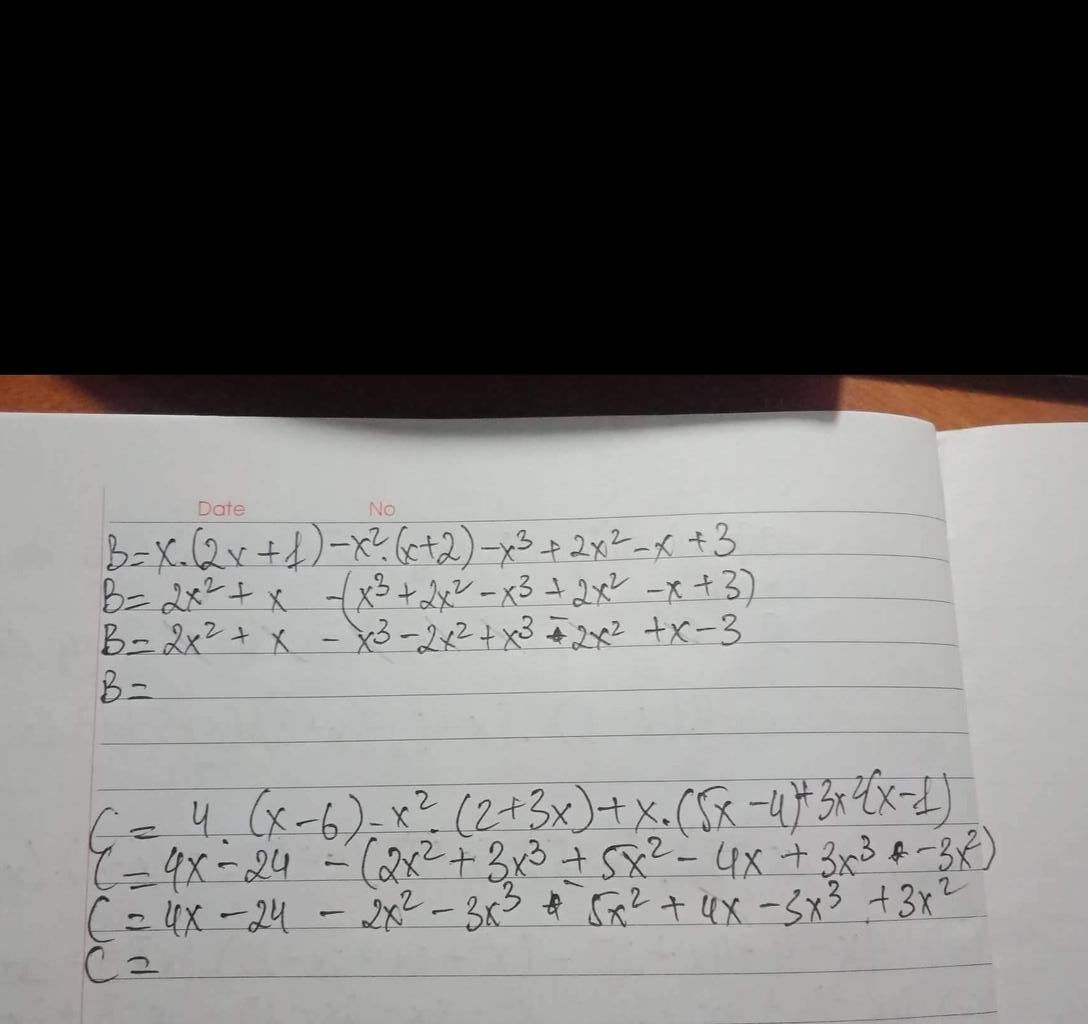 Date No
B=x.(2x+1)-x².(x+2)-x³+2x²-x+3
B= 2x²+x -(x³+2x²-x³+2x²-x+3)
B= 2x²+x -x³-2x²+x³-2x²+x-3
B=
C= 4.(x-6)-x².(2+3x)+x.(5x-4)+3x²(x-1)
C=4x-24 -(2x²+3x³+5x²-4x+3x³-3x²)
C=4x-24 -2x²-3x³-5x²+4x-3x³+3x²
C=